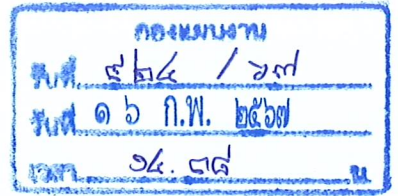 กองแผนงาน
รับที่ ๙๒๔ / ๖๗
วันที่ ๑ ๖ ก.พ. ๒๕๖๗
เวลา ๑๔.๓๘ น